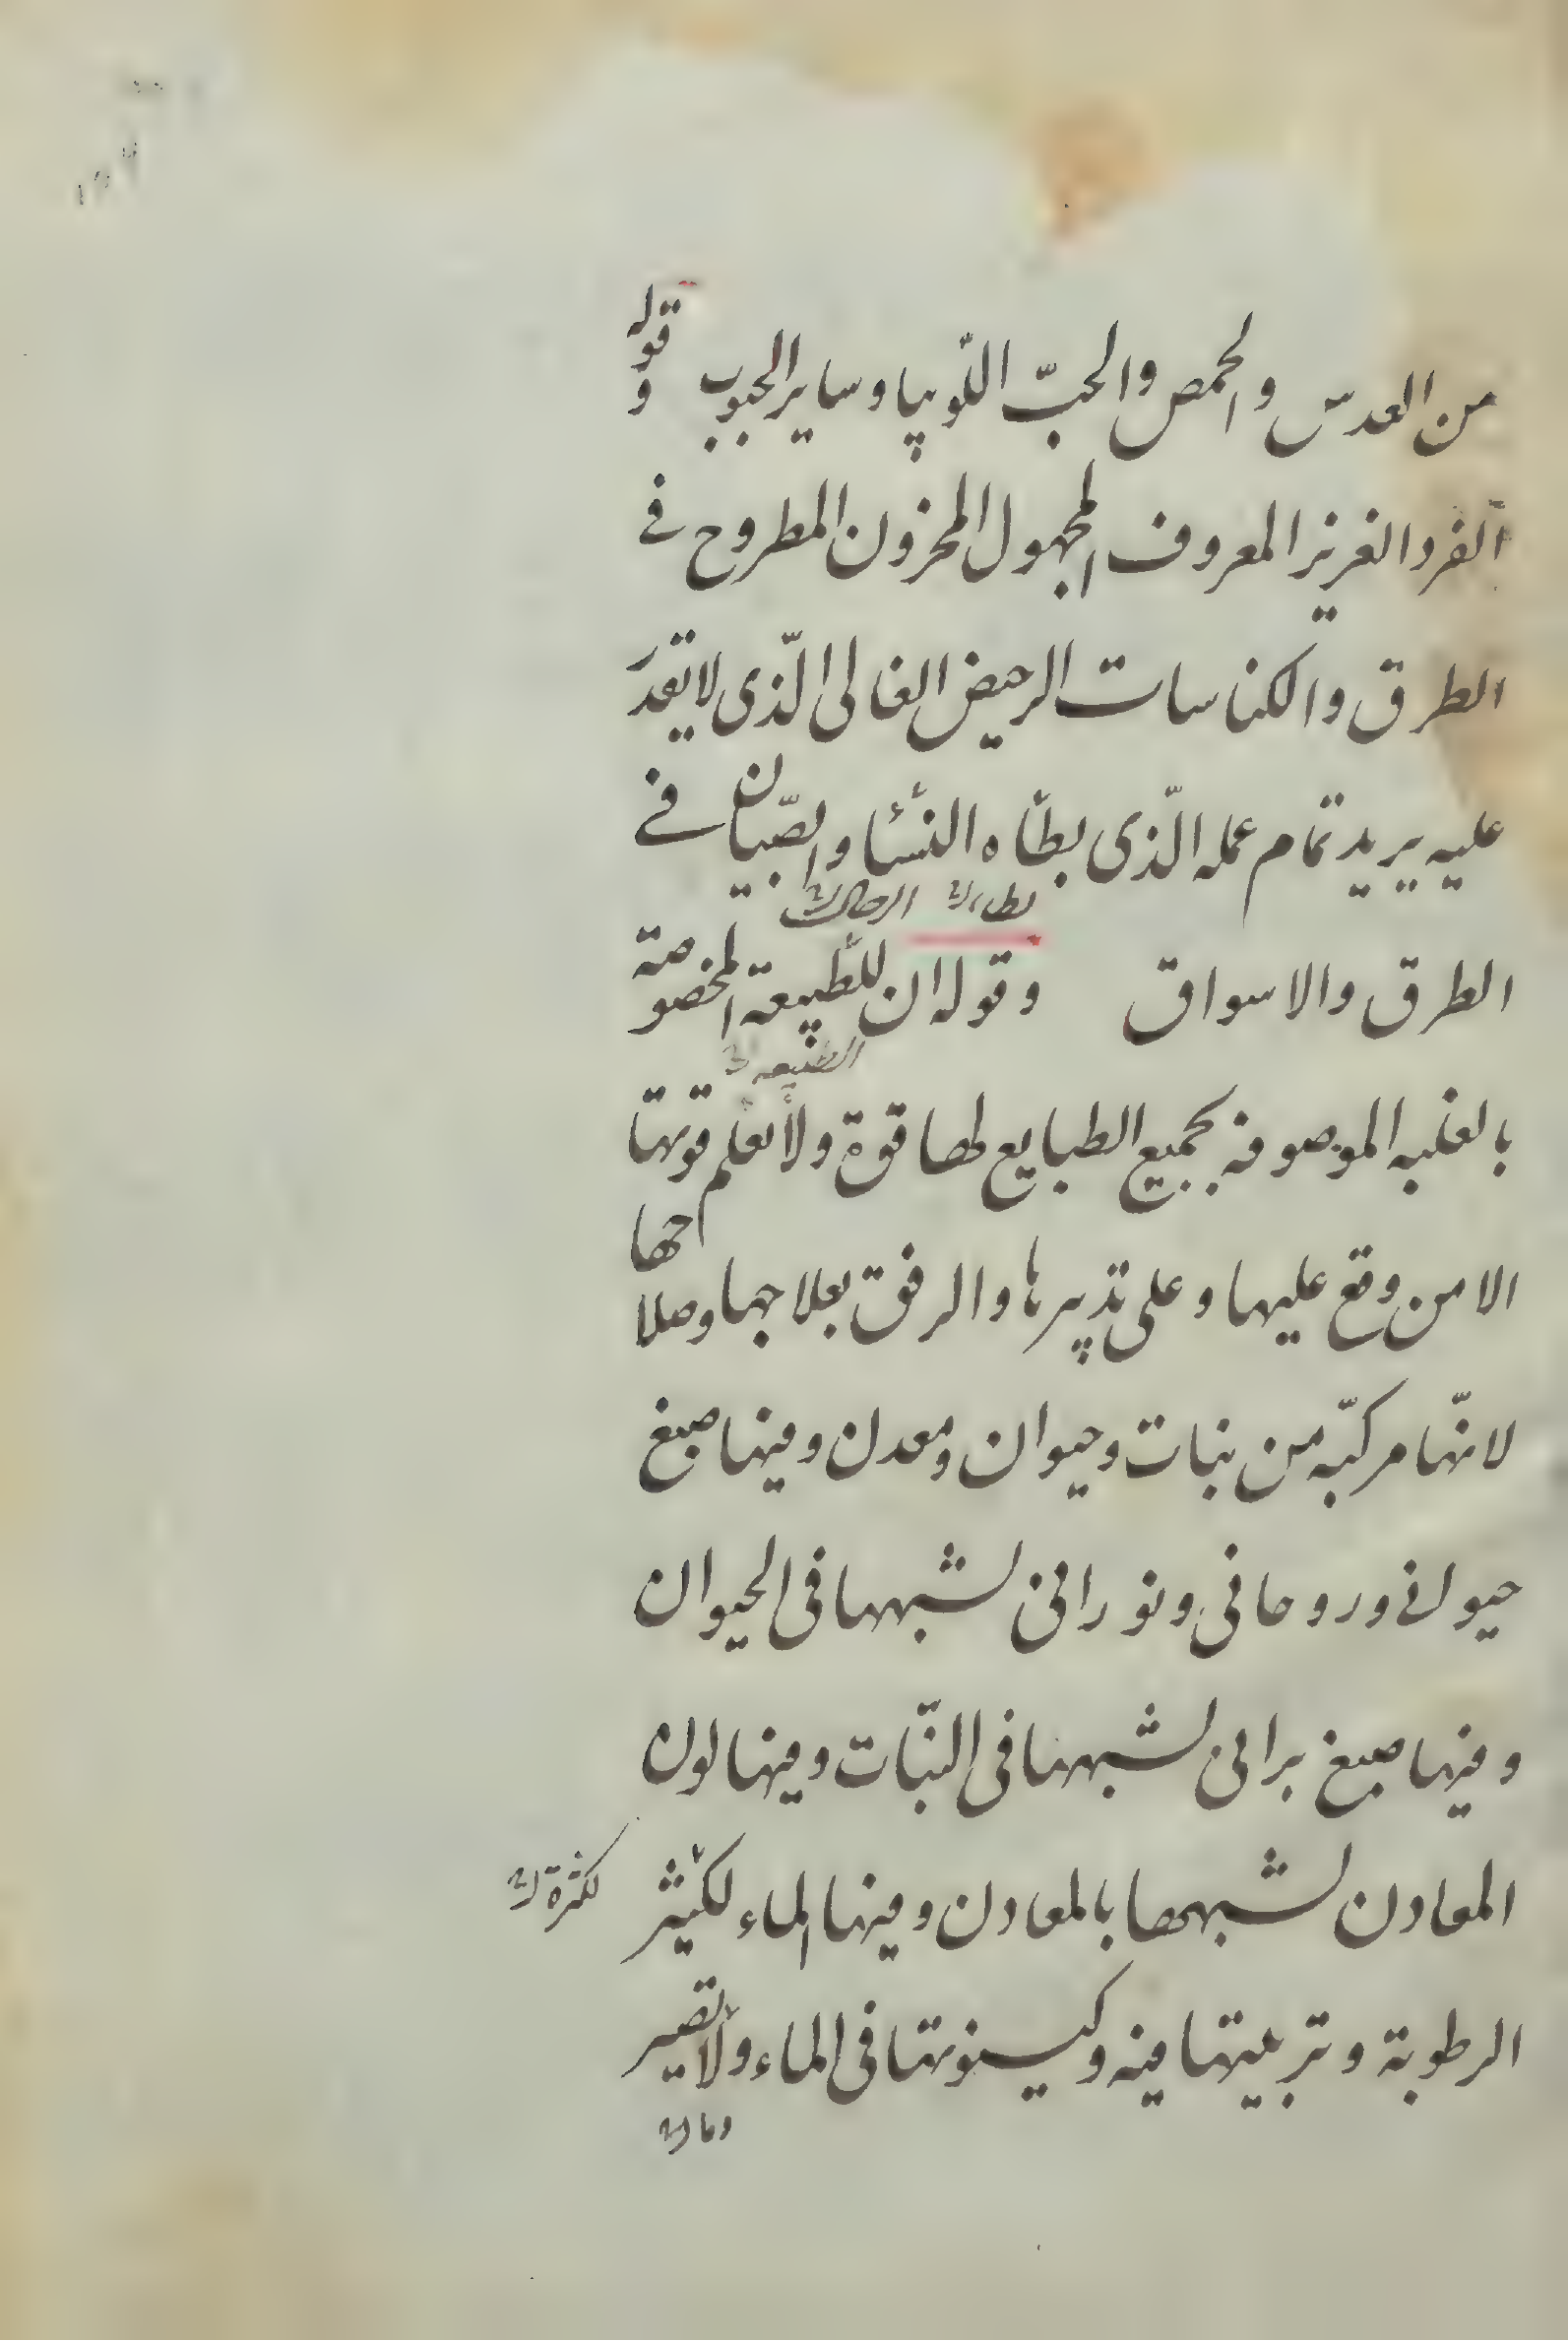 من العدس والحمص والحبّ اللّوبيا وساير الحبوب وقوله
الفرد الغريز المعروف المجهول المخزون المطروح في
الطرق والكناسات الرخيص الغالى الّذى لا يقدر
عليه يريد تمام عمله الّذى يطأه النسٔا والصّبيان في
الرجال
الطرق والاسواق وقوله ان للطّبيعة المخصوصة
الطبيعه
بالغلبه الموصوفه بجميع الطبايع لها قوة ولا تعلم قوتها
الا من وقع عليها وعلى تدبيرها والرفق بعلاجها وصلاحها
لانّها مركبّه من نبات وحيوان ومعدن وفيها صبغ
حيوانى وروحانى ونورانى لشبهها فى الحيوان
وفيها صبغ برانى لشبهها فى النّبات وفيها لون
المعادن لشبهها بالمعادن وفيها الماء لكثير
لكثرة
الرطوبة وتربيتها فيه وكينونتها فى الماء ولا تصير
وما